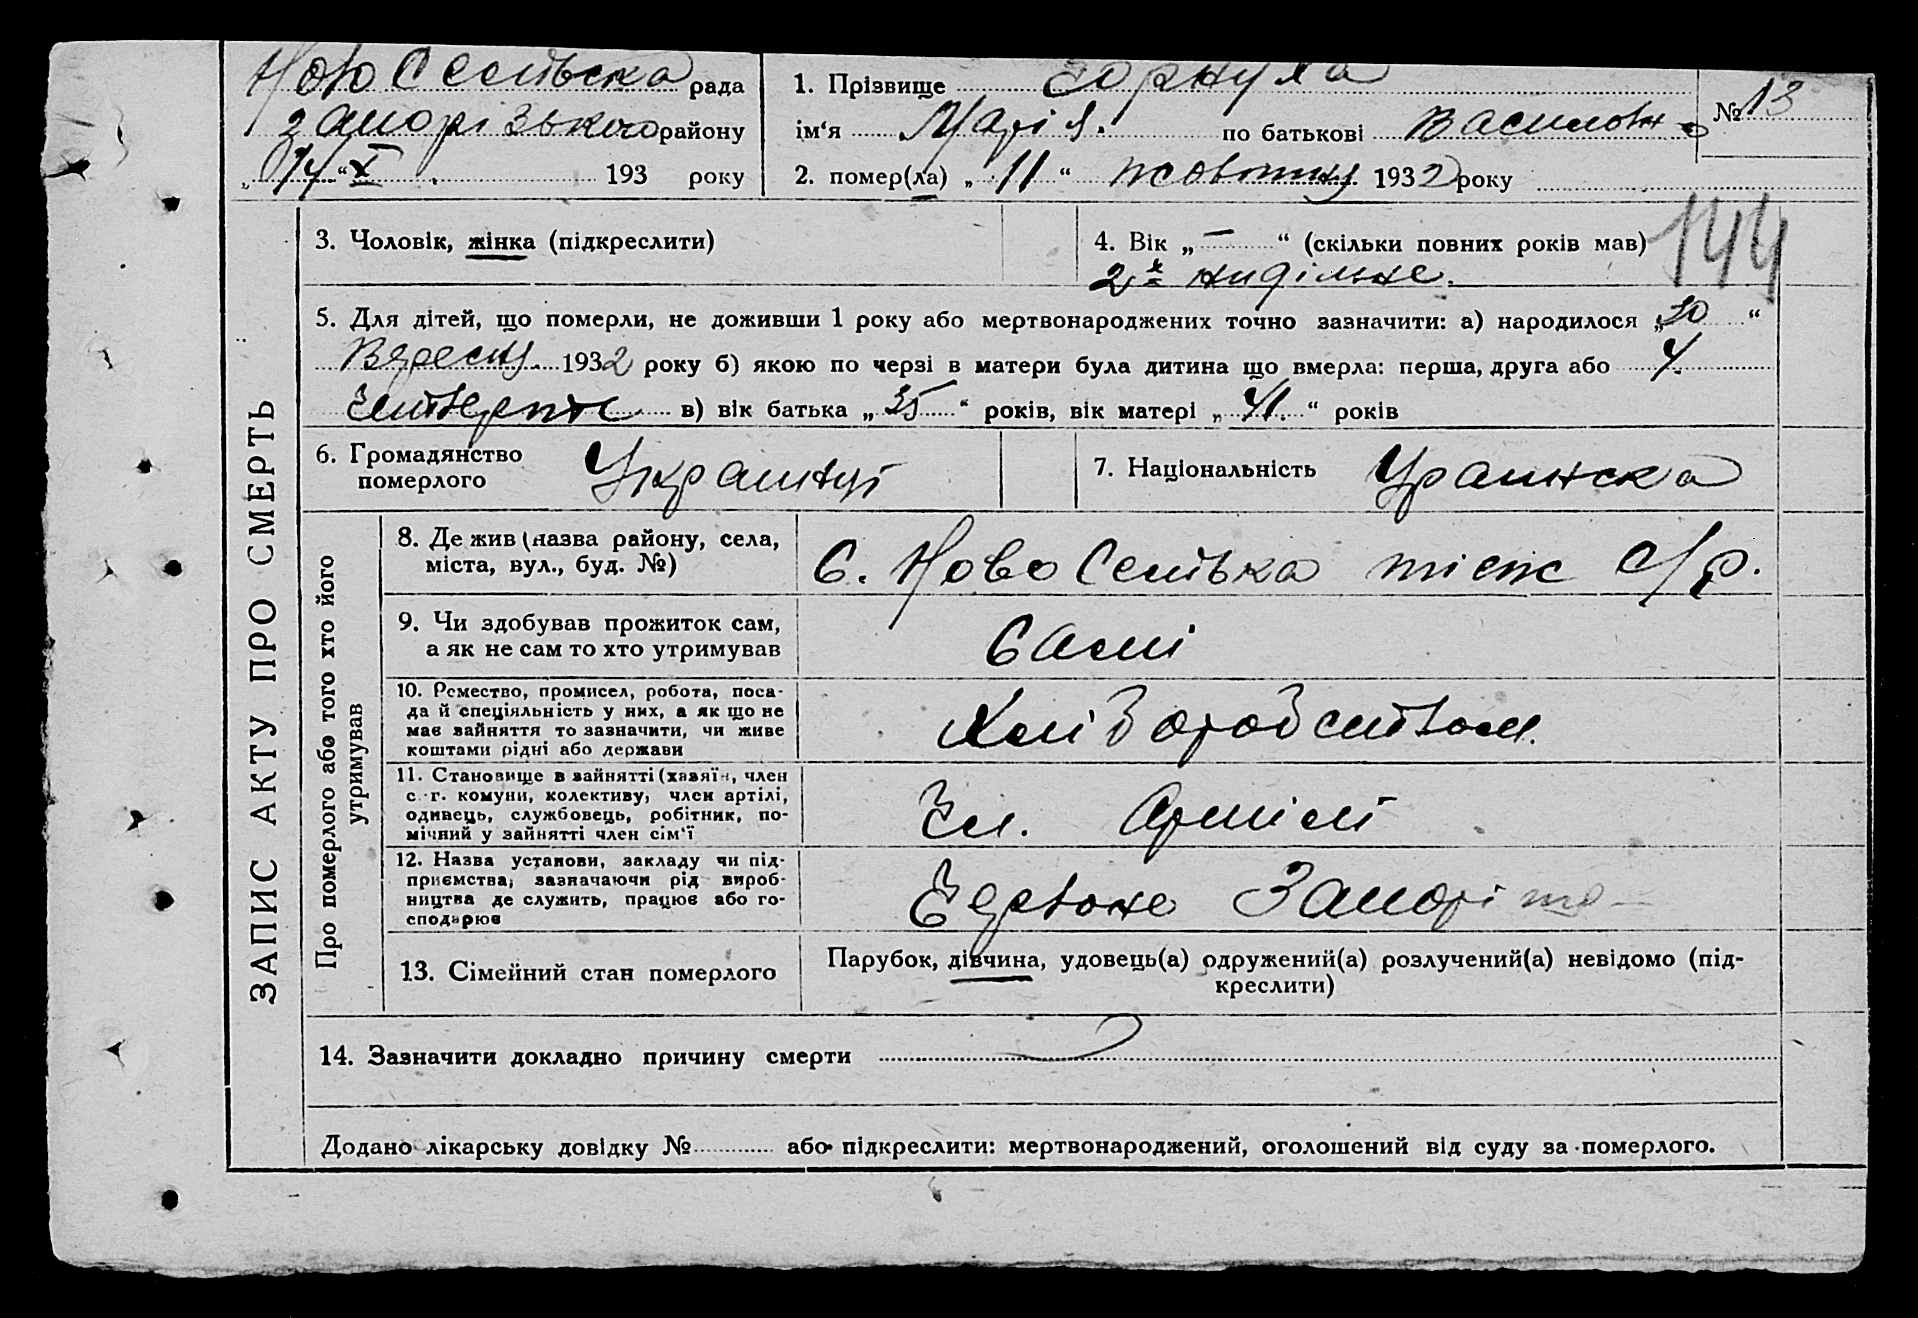 Ново Селивска рада
Запорізького району
„14“ X 193 року
1. Прізвище
ім‘я Марія. по батькові Василовна
2. помер(ла) „11“ жовтня 1932 року
№ 13
144
3. Чоловік, жінка (підкреслити)
4. Вік „—“ (скільки повних років мав)
2х нидільне.
5. Для дітей, що померли, не доживши 1 року або мертвонароджених точно зазначити: а) народилося „30“
Вересня. 1932 року б) якою по черзі в матери була дитина що вмерла: перша, друга або 4.
в) вік батька „35“ років, вік матері „41.“ років
6. Громадянство
померлого
Українці
7. Національність
Ураинска
ЗАПИС АКТУ ПРО СМЕРТЬ
Про померлого або того хто його
утримував
8. Де жив (назва району, села,
міста, вул., буд. №)
С. Ново Селівка тієж с/р.
9. Чи здобував прожиток сам,
а як не сам то хто утримував
Самі
10. Ремество, промисел, робота, поса-
да й спеціяльність у них, а як що не
має зайняття то зазначити, чи живе
коштами рідні або держави
Хліборобством.
11. Становище в зайнятті (хазяїн, член
с.-г. комуни, колективу, член артілі,
одинець, службовець, робітник, по-
мічний у зайнятті член сім‘ї
Чл. Артілі
12. Назва установи, закладу чи під-
приємства, зазначаючи рід вироб-
ництва де служить, працює або го-
сподарює
13. Сімейний стан померлого
Парубок, дівчина, удовець(а) одружений(а) розлучений(а) невідомо (під-
креслити)
14. Зазначити докладно причину смерти
Додано лікарську довідку № або підкреслити: мертвонароджений, оголошений від суду за померлого.